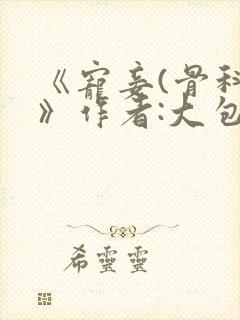 《寵妾(骨科
》作者:大包
希靈靈